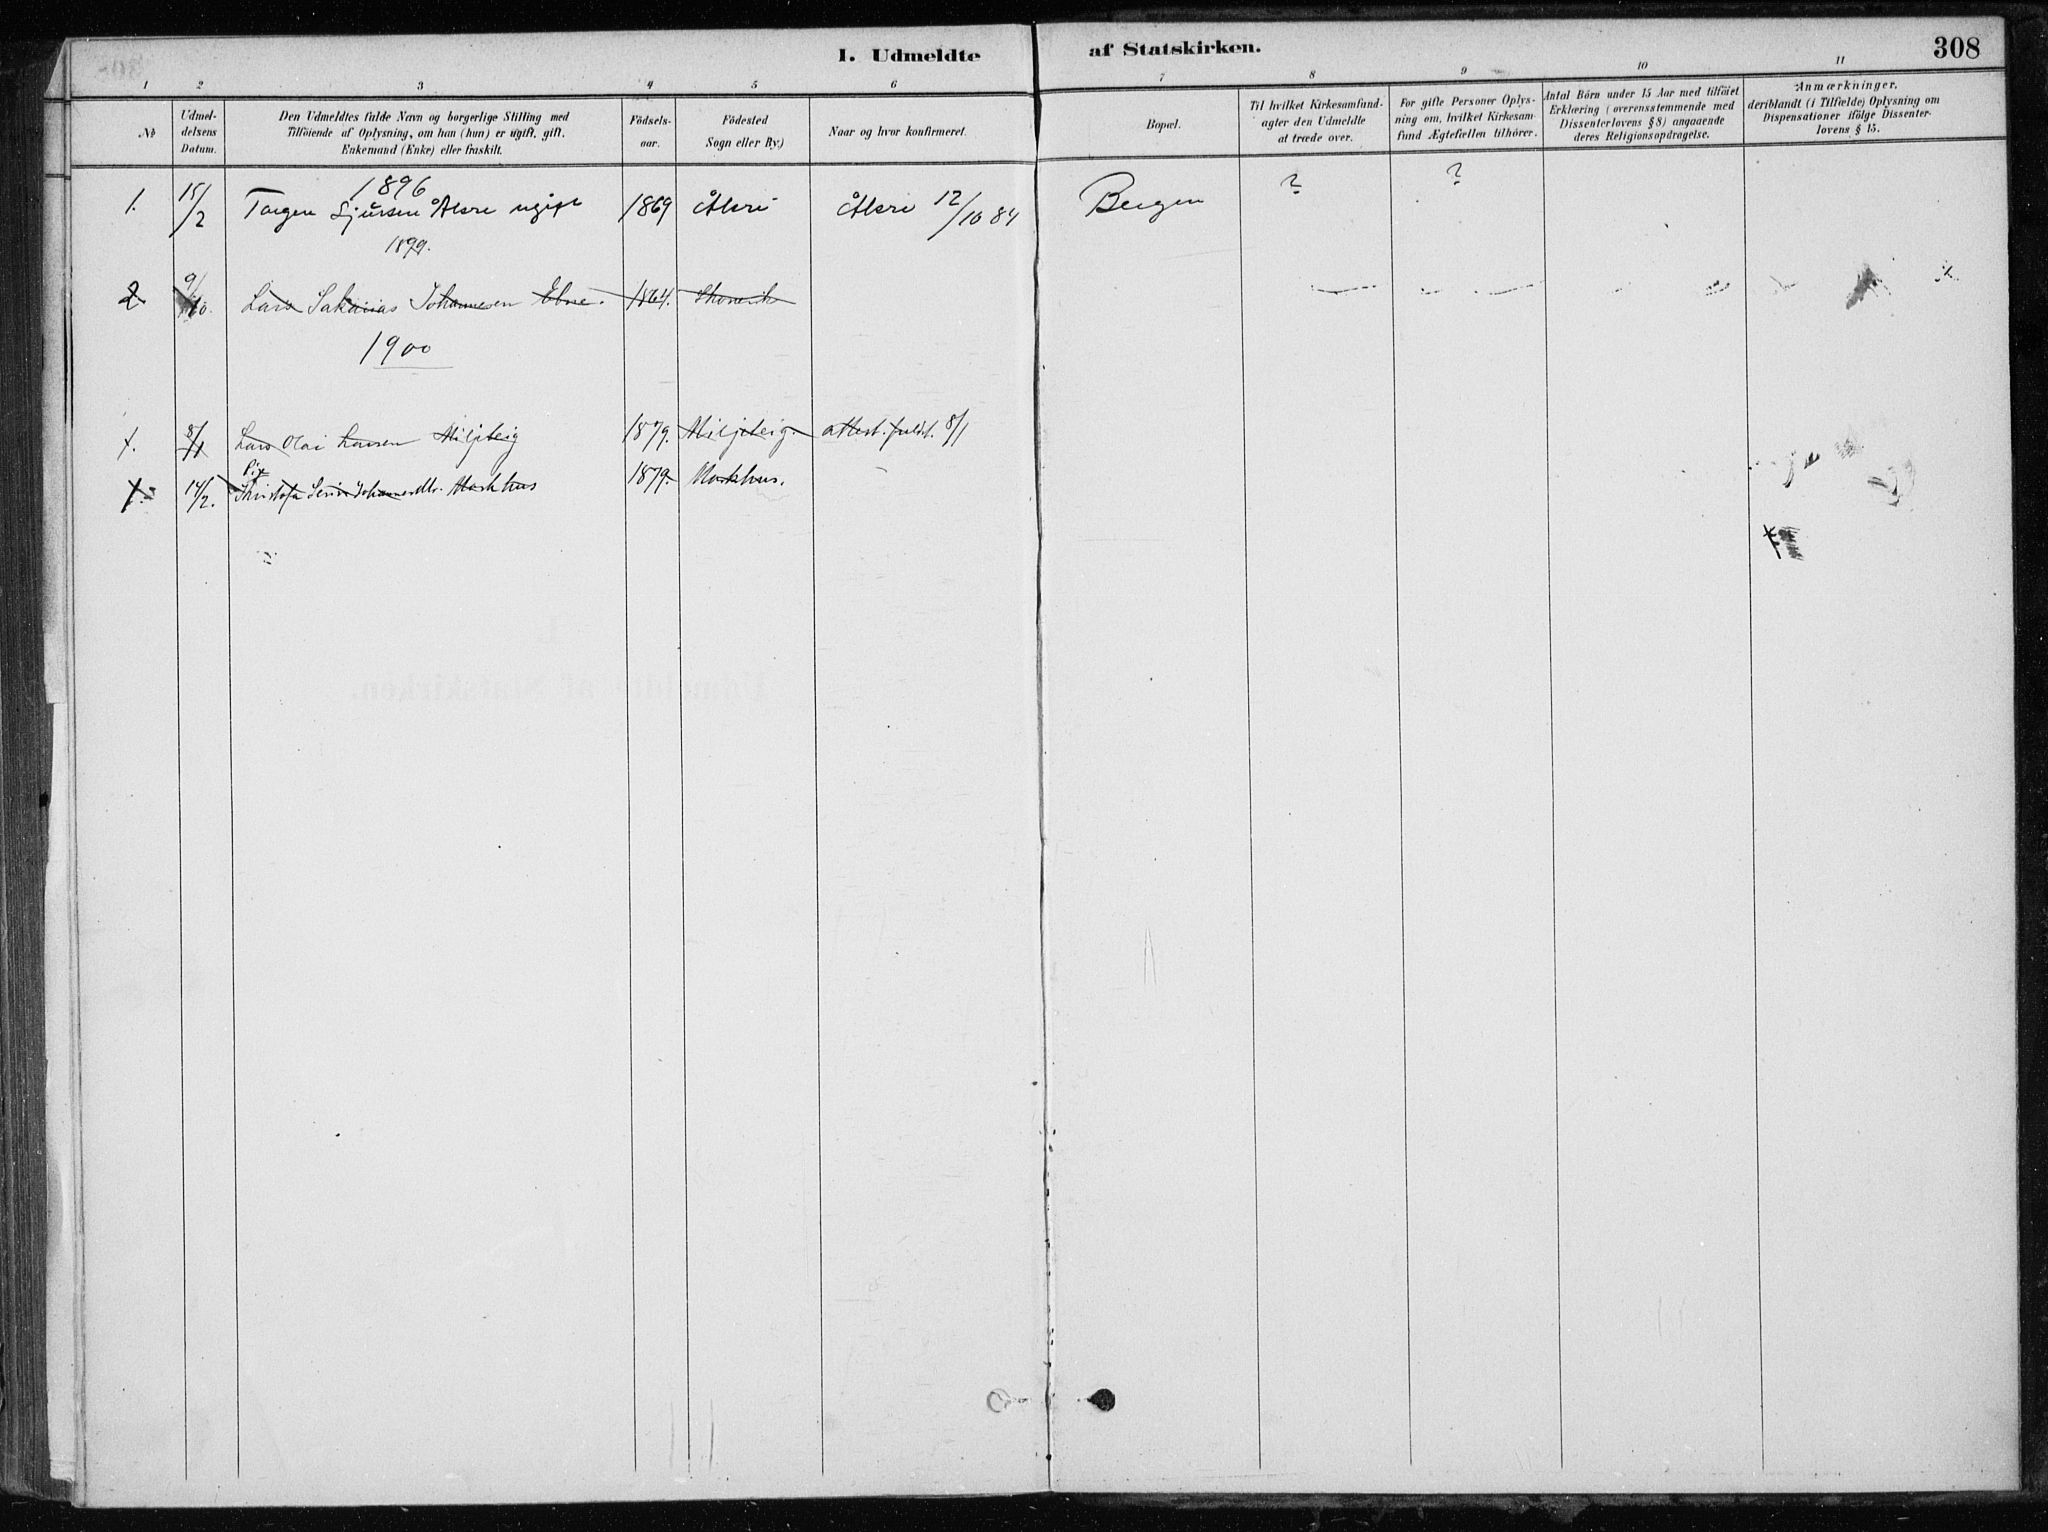 I. Udmeldte af Statskirken. 308
1 2 3 4 5 6 7 8 9 10 11
No
Udmel-
delsens
Datum.
Den Udmeldtes fulde Navn og borgerlige Stilling med
Tilföiende af Oplysning, om han (hun) er ugift, gift,
Enkemand (Enke) eller fraskilt.
Födsels-
aar.
Födested
Sogn eller By.)
Naar og hvor konfirmeret.
Bopæl.
Til hvilket Kirkesamfund-
agter den Udmeldte
at træde over.
For gifte Personer Oplys-
ning om, hvilket Kirkesam-
fund Ægtefællen tilhörer.
Antal Börn under 15 Aar med tilföiet
Erklæring (overensstemmende med
Dissenterlovens § 8) angaaende
deres Religionsopdragelse.
Anmærkninger,
deriblandt (i Tilfælde) Oplysning om
Dispensationer ifölge Dissenter-
lovens § 15.
1896
1. 15/2 Torgen Sjursen Ålsre ugift 1869 Ålsre Ålsre 12/10 84 Bergen ? ?
1899.
2 9/10. Lars Sakarias Johannesen Ebne. 1864. Skonevik
1900
1. 8/1 Lars Olai Larsen Miljeteig 1879. Miljeteig. attest. fuldst. 8/1
Pige
1. 14/2. Kristofa Serine Johannesdtr. Markhus 1879. Markhus.